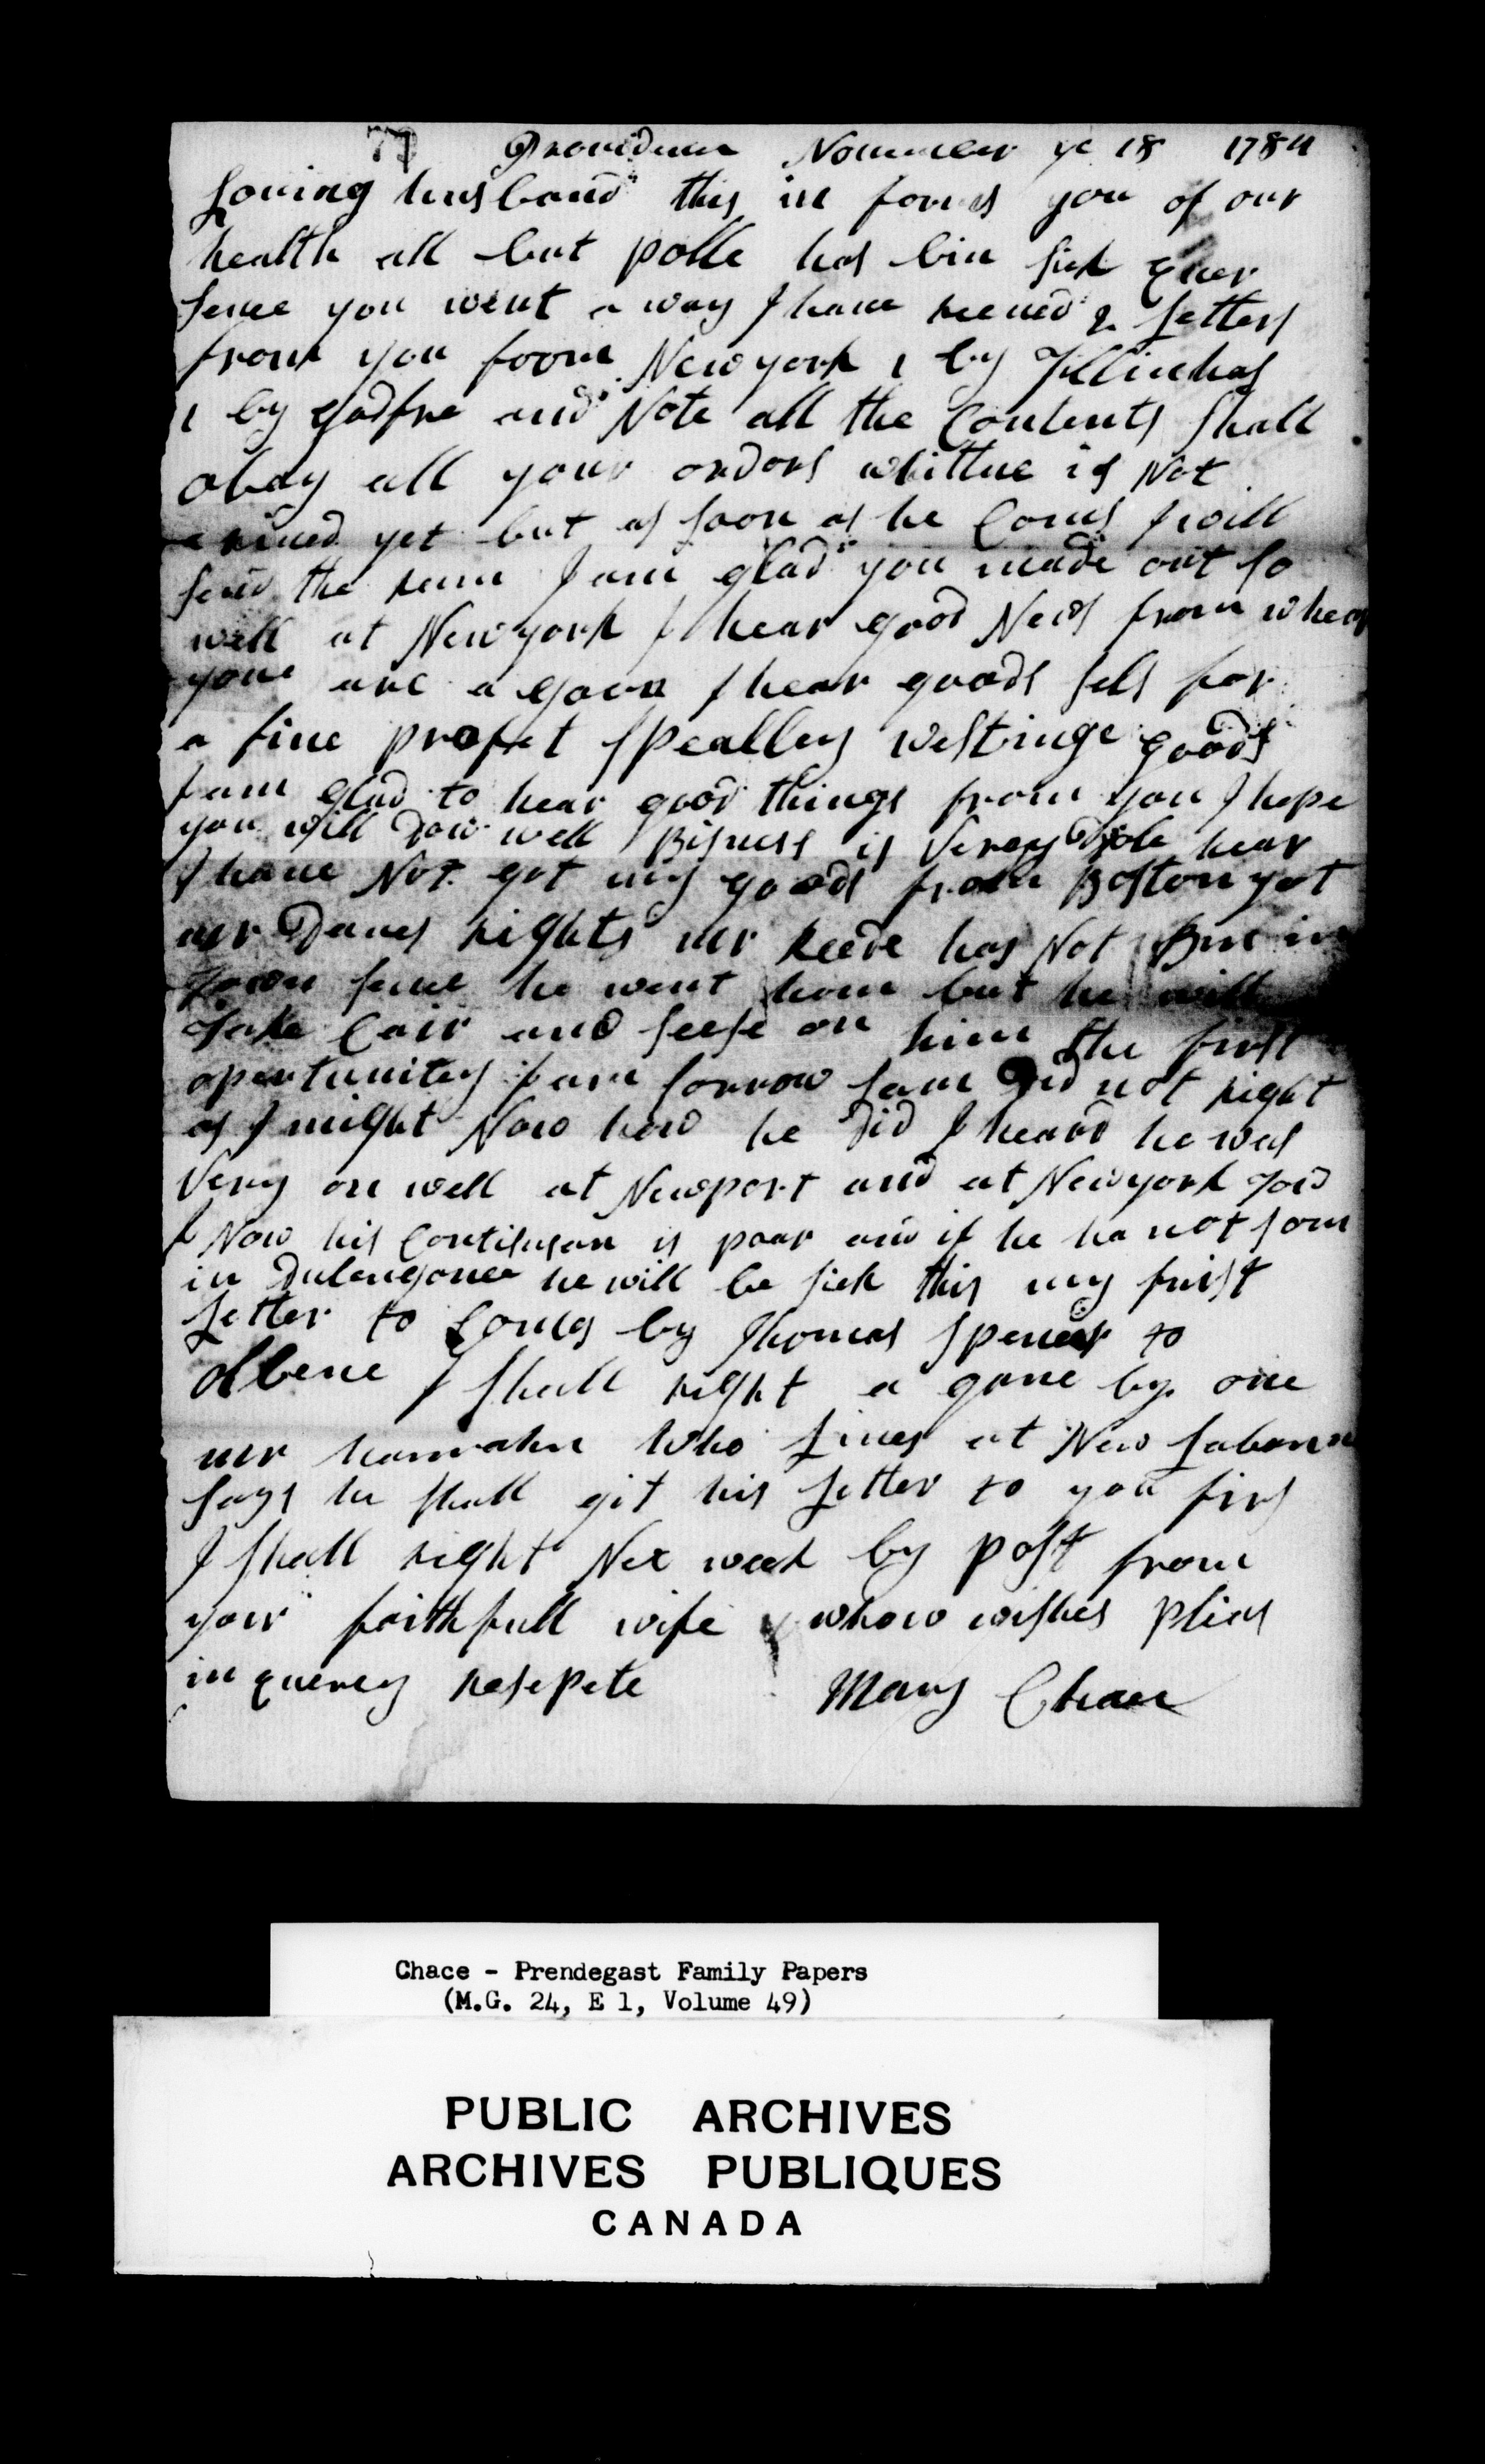 77 Providence November ye 18 1784
Loving husband this in forms you of our
health all but polle has bin sick Ever
sence you went a way I have receved 2 Letters
from you foom Newyork 1 by
1 by Godfre and Note all the Contents shall
obay all your ordors whittne is Not
arived yet but as soon as he Coms I will
send the rum I am glad you made out so
well at Newyork I hear good News from whear
you are a goen I hear goods sels for
a fine profet spealley westinge goods
I am glad to hear good things from you I hope
you will dow well Bisness is Verey dole hear
I have Not got my goods from Boston yet
mr Daves rights mr Reede has Not Bin in
town sence he went hom but he will
Take Cair and seese on him the first
opertunitey I am sorrow sam Did not right
as I might Now how he did I heard he was
Very on well at Newport and at Newyork
I Now his Contisuson is poor and if he ha not som
in Dulengance he will be sick this my first
Letter to Comes by Thomas Spencer to
Albene I shall right a gane by one
mr who Lives at New Labanon
says he shall git his Letter to you firs
I shall right Nex week by post from
your faithfull wife whow wishes plies
in querey resepete Mary Chace
Chace - Prendegast Family Papers
(M.G. 24, E 1, Volume 49)
PUBLIC ARCHIVES
ARCHIVES PUBLIQUES
CANADA